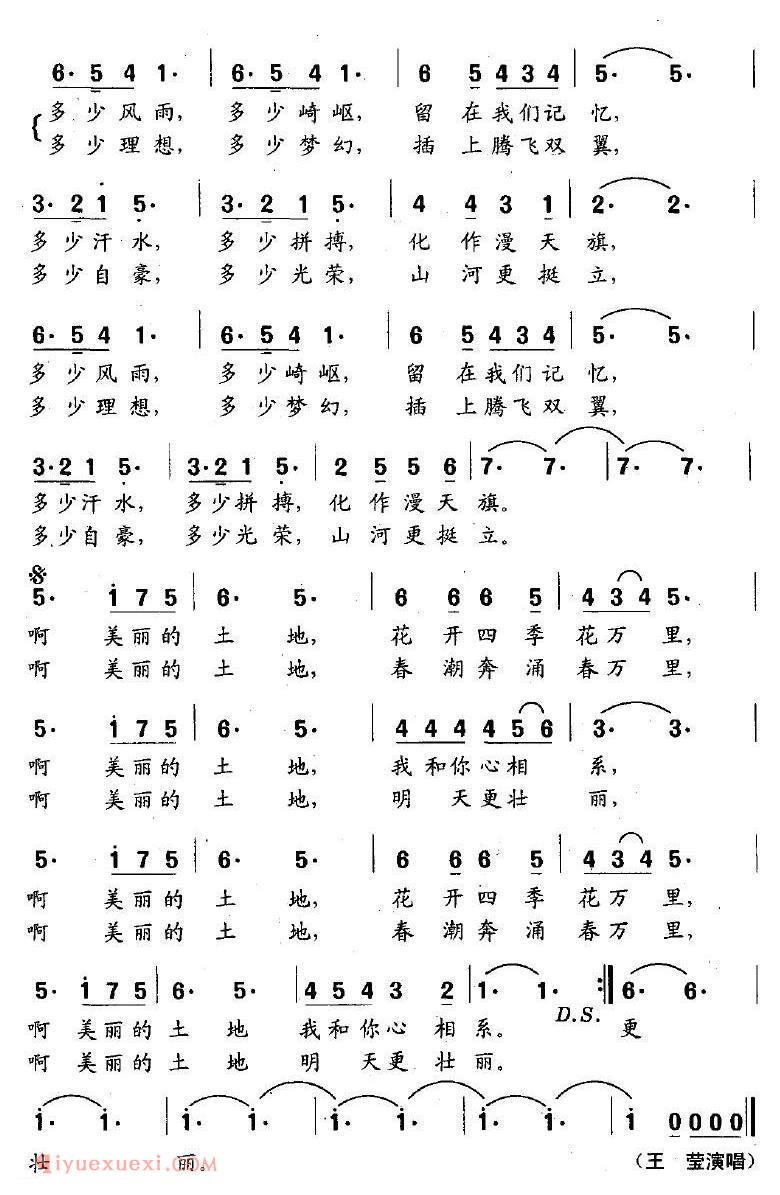 6· 5 4 1· | 6· 5 4 1· | 6 5 4 3 4 | 5· 5· |
多少风雨, 多少崎岖, 留在我们记忆,
多少理想, 多少梦幻, 插上腾飞双翼,
3· 2 1 5· | 3· 2 1 5· | 4 4 3 1 | 2· 2· |
多少汗水, 多少拼搏, 化作漫天旗,
多少自豪, 多少光荣, 山河更挺立,
6· 5 4 1· | 6· 5 4 1· | 6 5 4 3 4 | 5· 5· |
多少风雨, 多少崎岖, 留在我们记忆,
多少理想, 多少梦幻, 插上腾飞双翼,
3· 2 1 5· | 3· 2 1 5· | 2 5 5 6 | 7· 7· | 7· 7· |
多少汗水, 多少拼搏, 化作漫天旗。
多少自豪, 多少光荣, 山河更挺立。
5· 1 7 5 | 6· 5· | 6 6 6 5 | 4 3 4 5· |
啊 美丽的土地, 花开四季花万里,
啊 美丽的土地, 春潮奔涌春万里,
5· 1 7 5 | 6· 5· | 4 4 4 4 5 6 | 3· 3· |
啊 美丽的土地, 我和你心相系,
啊 美丽的土地, 明天更壮丽,
5· 1 7 5 | 6· 5· | 6 6 6 5 | 4 3 4 5· |
啊 美丽的土地, 花开四季花万里,
啊 美丽的土地, 春潮奔涌春万里,
5· 1 7 5 | 6· 5· | 4 5 4 3 2 | 1· 1· :‖ 6· 6· |
D.S.
啊 美丽的土地 我和你心相系。 更
啊 美丽的土地 明天更壮丽。
1· 1· | 1· 1· | 1· 1· | 1· 1· | 1· 1· | 1 0 0 0 0 ‖
壮 丽。
iyuexuexi.com
(王 莹演唱)